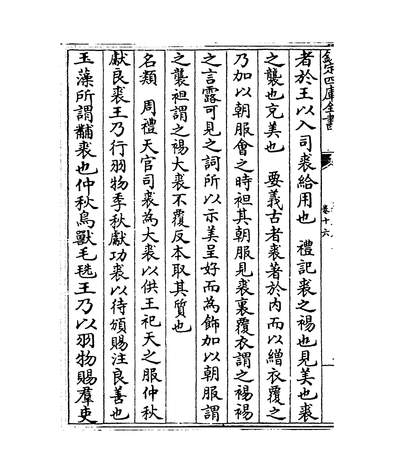 欽定四庫全書
卷十六
者於王以入司裘給用也　禮記裘之裼也見美也裘
之襲也充美也　要義古者裘著於內而以繒衣覆之
乃加以朝服會之時袒其朝服見裘裏覆衣謂之裼裼
之言露可見之詞所以示美呈好而為飾加以朝服謂
之襲袒謂之裼大裘不覆反本取其質也
名類　周禮天官司裘為大裘以供王祀天之服仲秋
獻良裘王乃行羽物季秋獻功裘以待頒賜注良善也
玉藻所謂黼裘也仲秋鳥獸毛毨王乃以羽物賜羣吏